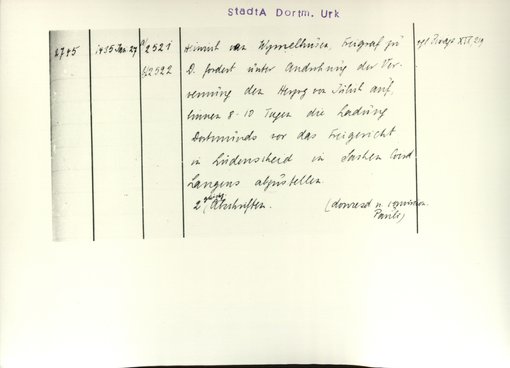 StadtA Dortm. Urk
2745 1435 Jan. 27 a) 2521 Heinrich von Wymelhusen, Freigraf zu
b) 2522 D. fordert unter Androhung der Ver-
vemung den Herzog von Jülich auf,
binnen 8-10 Tagen die Ladung
Dortmunds vor das Freigericht
in Lüdenscheid in Sachen Cord
Langens abzustellen.
2 Abschriften.